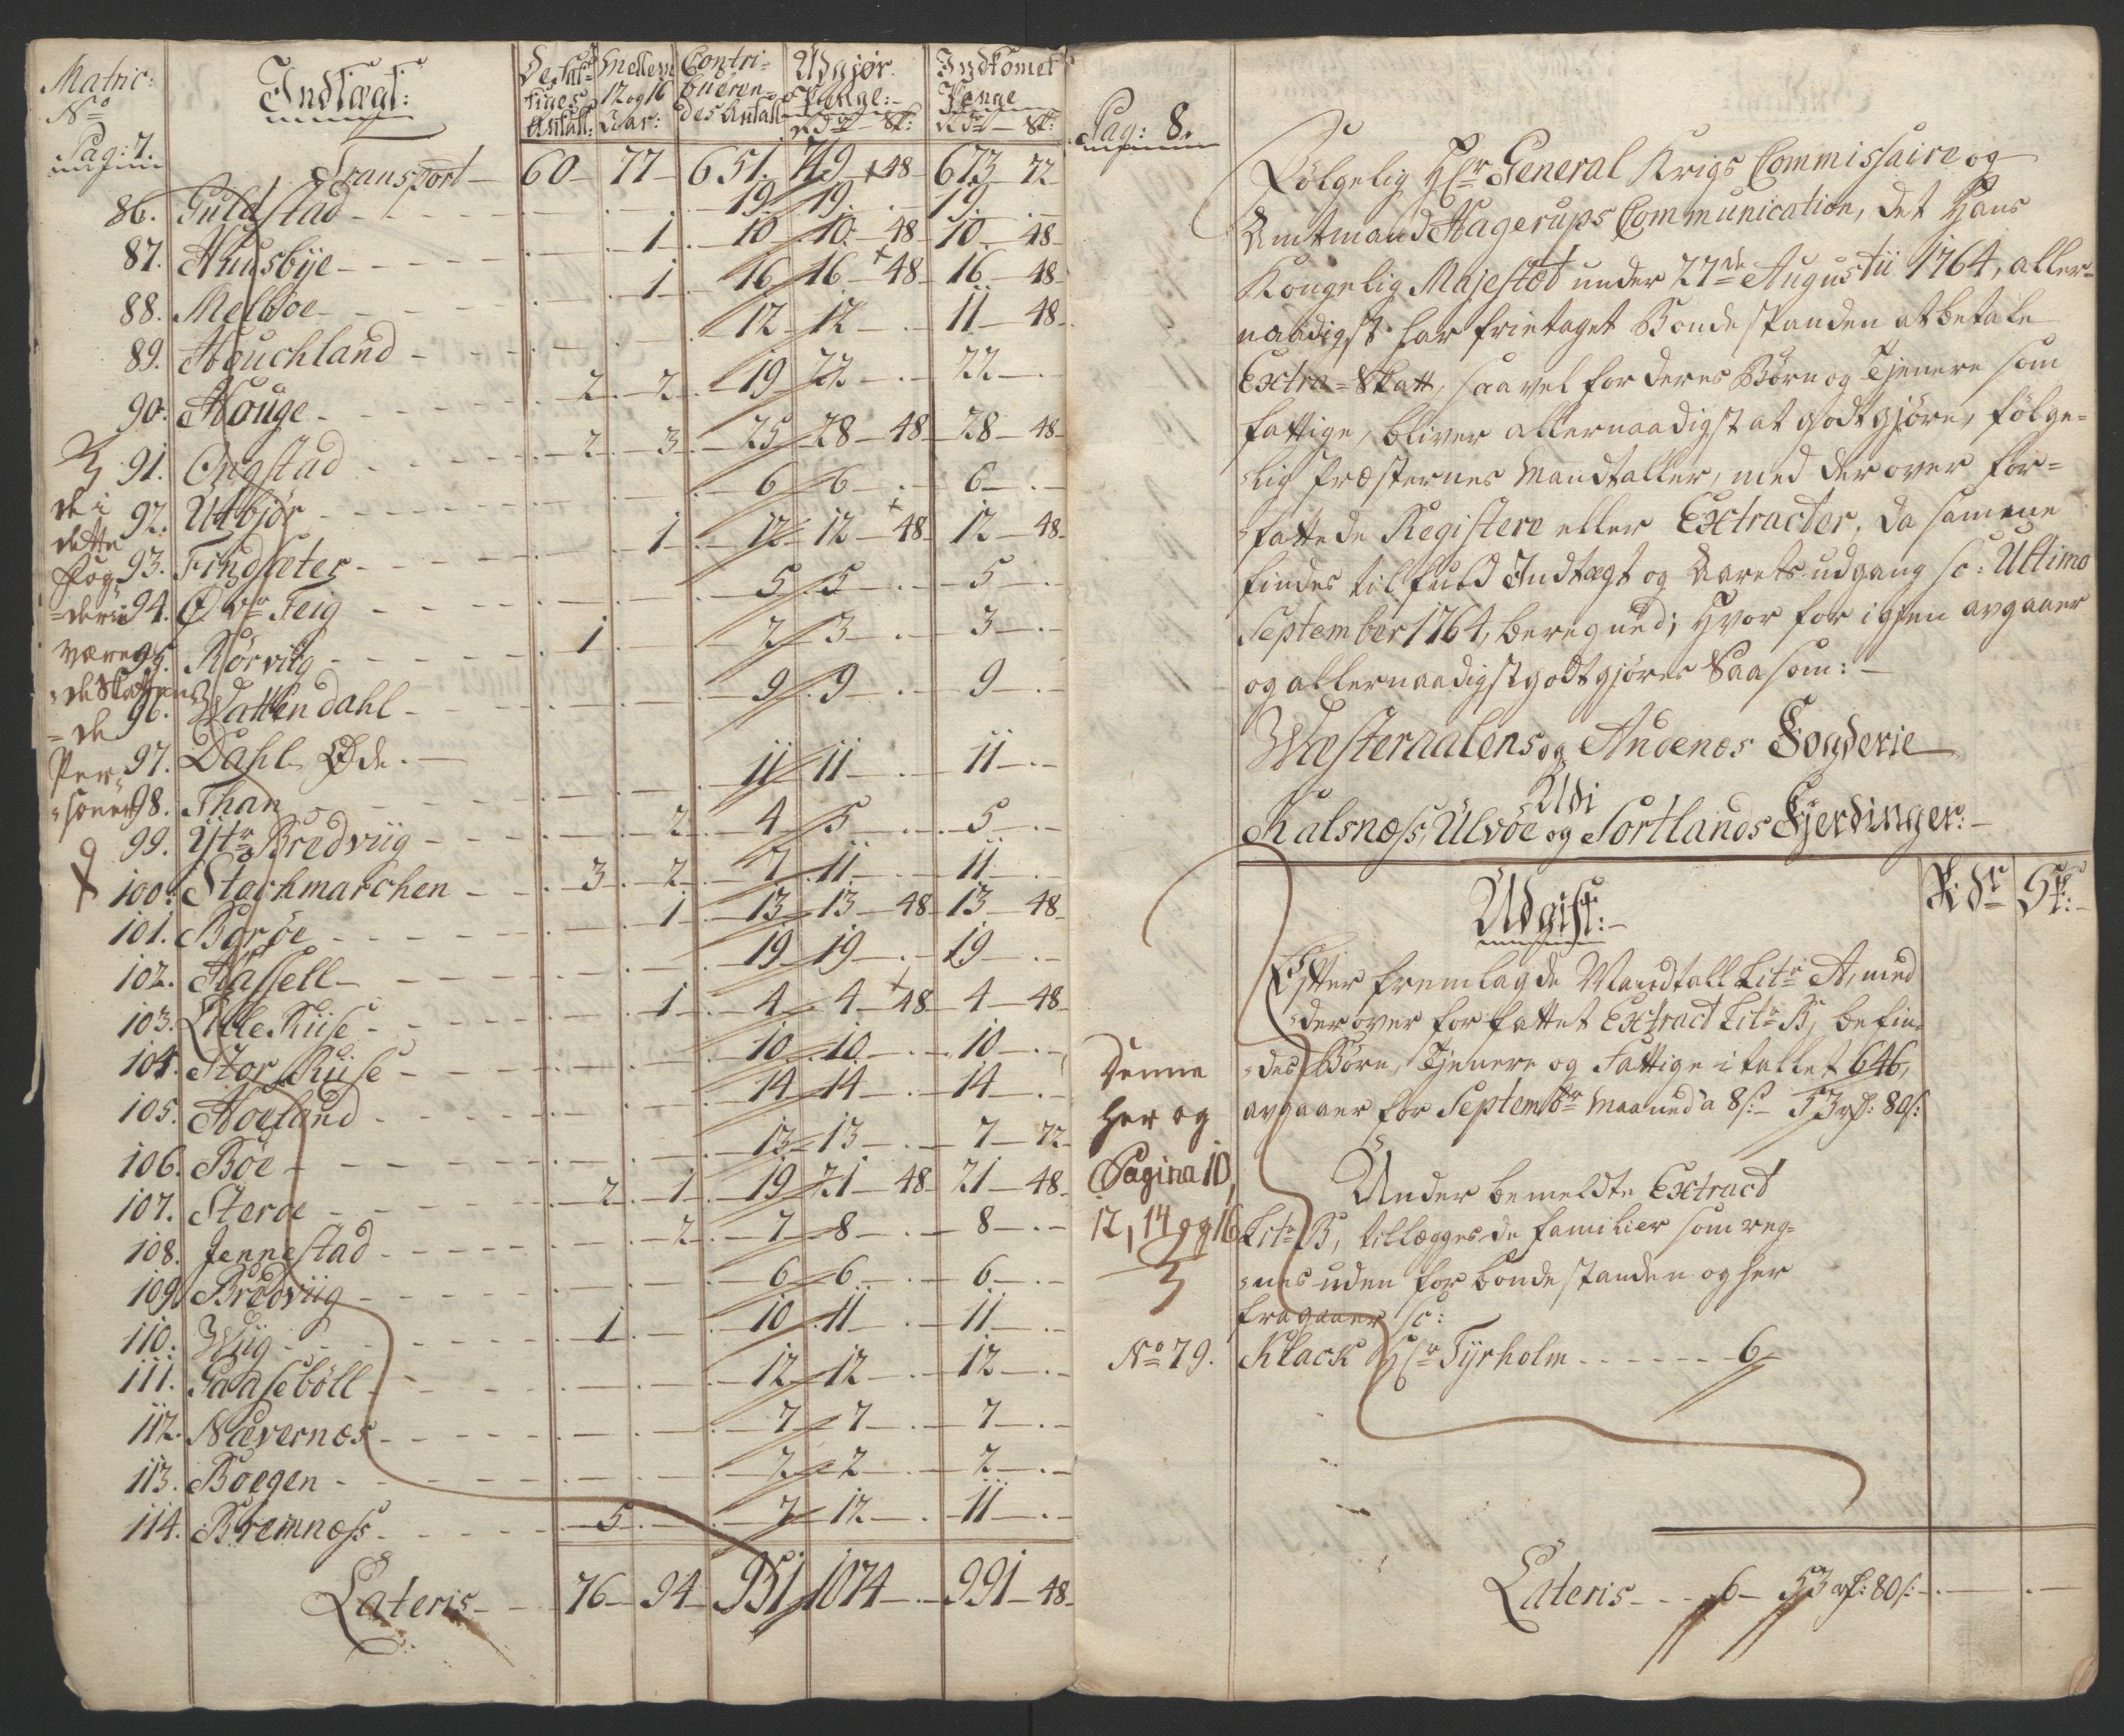 Matric: No
Pag: 7.
Indtægt:
De Fattiges Antall: | Mellem 12 og 16 Aar: | Contribuerendes Antall | Udgjør Penge: Rdr Sk: | Indkomet Penge Rdr Sk:
Transport - 60 - 77 - 651. 749 - 48 - 673 - 72
86. Guldstad - - - - 19 - 19 - . - 19 . -
87. Huusbye - - - - 1 - 10 - 10 - 48 - 10 - 48
88. Melboe - - - - 1 - 16 - 16 - 48 - 16 - 48
89. Houchland - - - 12 - 12 - . - 11 - 48
90. Houge - - - 2 - 2 - 19 - 22 - . - 22 - .
91. Ongstad - - - 2 - 3 - 25 - 28 - 48 - 28 - 48
92. Utbjör - - - 6 - 6 - . - 6 - .
93. Findsæter - - - 1 - 12 - 12 - 48 - 12 - 48
94. Øvr Feig - - - 5 - 5 - . - 5 - .
95. Rörviig - - - 1 - 2 - 3 - . - 3 - .
96. Wattendahl - - - 9 - 9 - . - 9 - .
97. Dahl Øde. -
98. Than - - - 11 - 11 - . - 11 - .
99. Ytr Bredviig - - 2 - 4 - 5 - . - 5 - .
100. Stochmarchen - - 3 - 2 - 7 - 11 - . - 11 - .
101. Boröe - - - 1 - 13 - 13 - 48 - 13 - 48
102. Hassell - - - 19 - 19 - . - 19 - .
103. Lille Kiise - - - 1 - 4 - 4 - 48 - 4 - 48
104. Stor Kiise - - - 10 - 10 - . - 10 - .
105. Hoeland - - - 14 - 14 - . - 14 - .
106. Böe - - - 13 - 13 - . - 7 - 72
107. Steroe - - - 2 - 1 - 19 - 21 - 48 - 21 - 48
108. Jennestad - - - 2 - 7 - 8 - . - 8 - .
109. Bredviig - - - 6 - 6 - . - 6 - .
110. Wiig - - - 1 - 10 - 11 - . - 11 - .
111. Gaaseböll - - - 12 - 12 - . - 12 - .
112. Nævernæs - - - 7 - 7 - . - 7 - .
113. Boegen - - - 2 - 2 - . - 2 - .
114. Bremnæss - - - 5 - 7 - 12 - . - 11 - .
Lateris - - 76 - 94 - 951 - 1074 - . - 991 - 48
de i
dette
Fog
=derie
væren
=de Skatten
=de
Per
=soner
Pag: 8.
Følgelig Hr General Krigs Commissaire og
Amtmand Hagerups Communication, det Hans
Kongelig Majestæt under 27de Augustii 1764, aller-
naadigst har frietaget Bondestanden at betale
Extra-Skatt, saavel for deres Børn og Tjenere som
fattige, bliver allernaadigst at godtgjøre, følge-
=lig Præsternes Mandtaller, med derover for=
=fattede Registere eller Extracter, da samme
findes til fuld Indtægt og Aarets udgang sc: Ultimo
September 1764, beregned; Hvor for igjen avgaaer
og allernaadigst godtgjøres Saasom: -
Wæsteraalens og Andenæs Fogderie
Udi
Kalsnæss, Ulvöe og Sortlands Fjerdinger: -
Udgift: - | Rdr | Sk: -
Efter fremlagde Mandtall Litr A, med
=derover forfattet Extract Litr B, befin=
=des Børn, Tjenere og Fattige i tallet 646,
avgaaer for Septembr Maaned a 8 s: - 53 rd: 80 s:
Under bemeldte Extract
Litr B, tillægges de familier som reg=
=nes uden for bondestanden og her
fragaaer sc:
Denne
her og
Pagina 10,
12, 14 og 16
No 79. Klack Hr Tyrholm - - - - - - 6
Lateris - - - 6 - 53 rd: 80 s: - . - . -